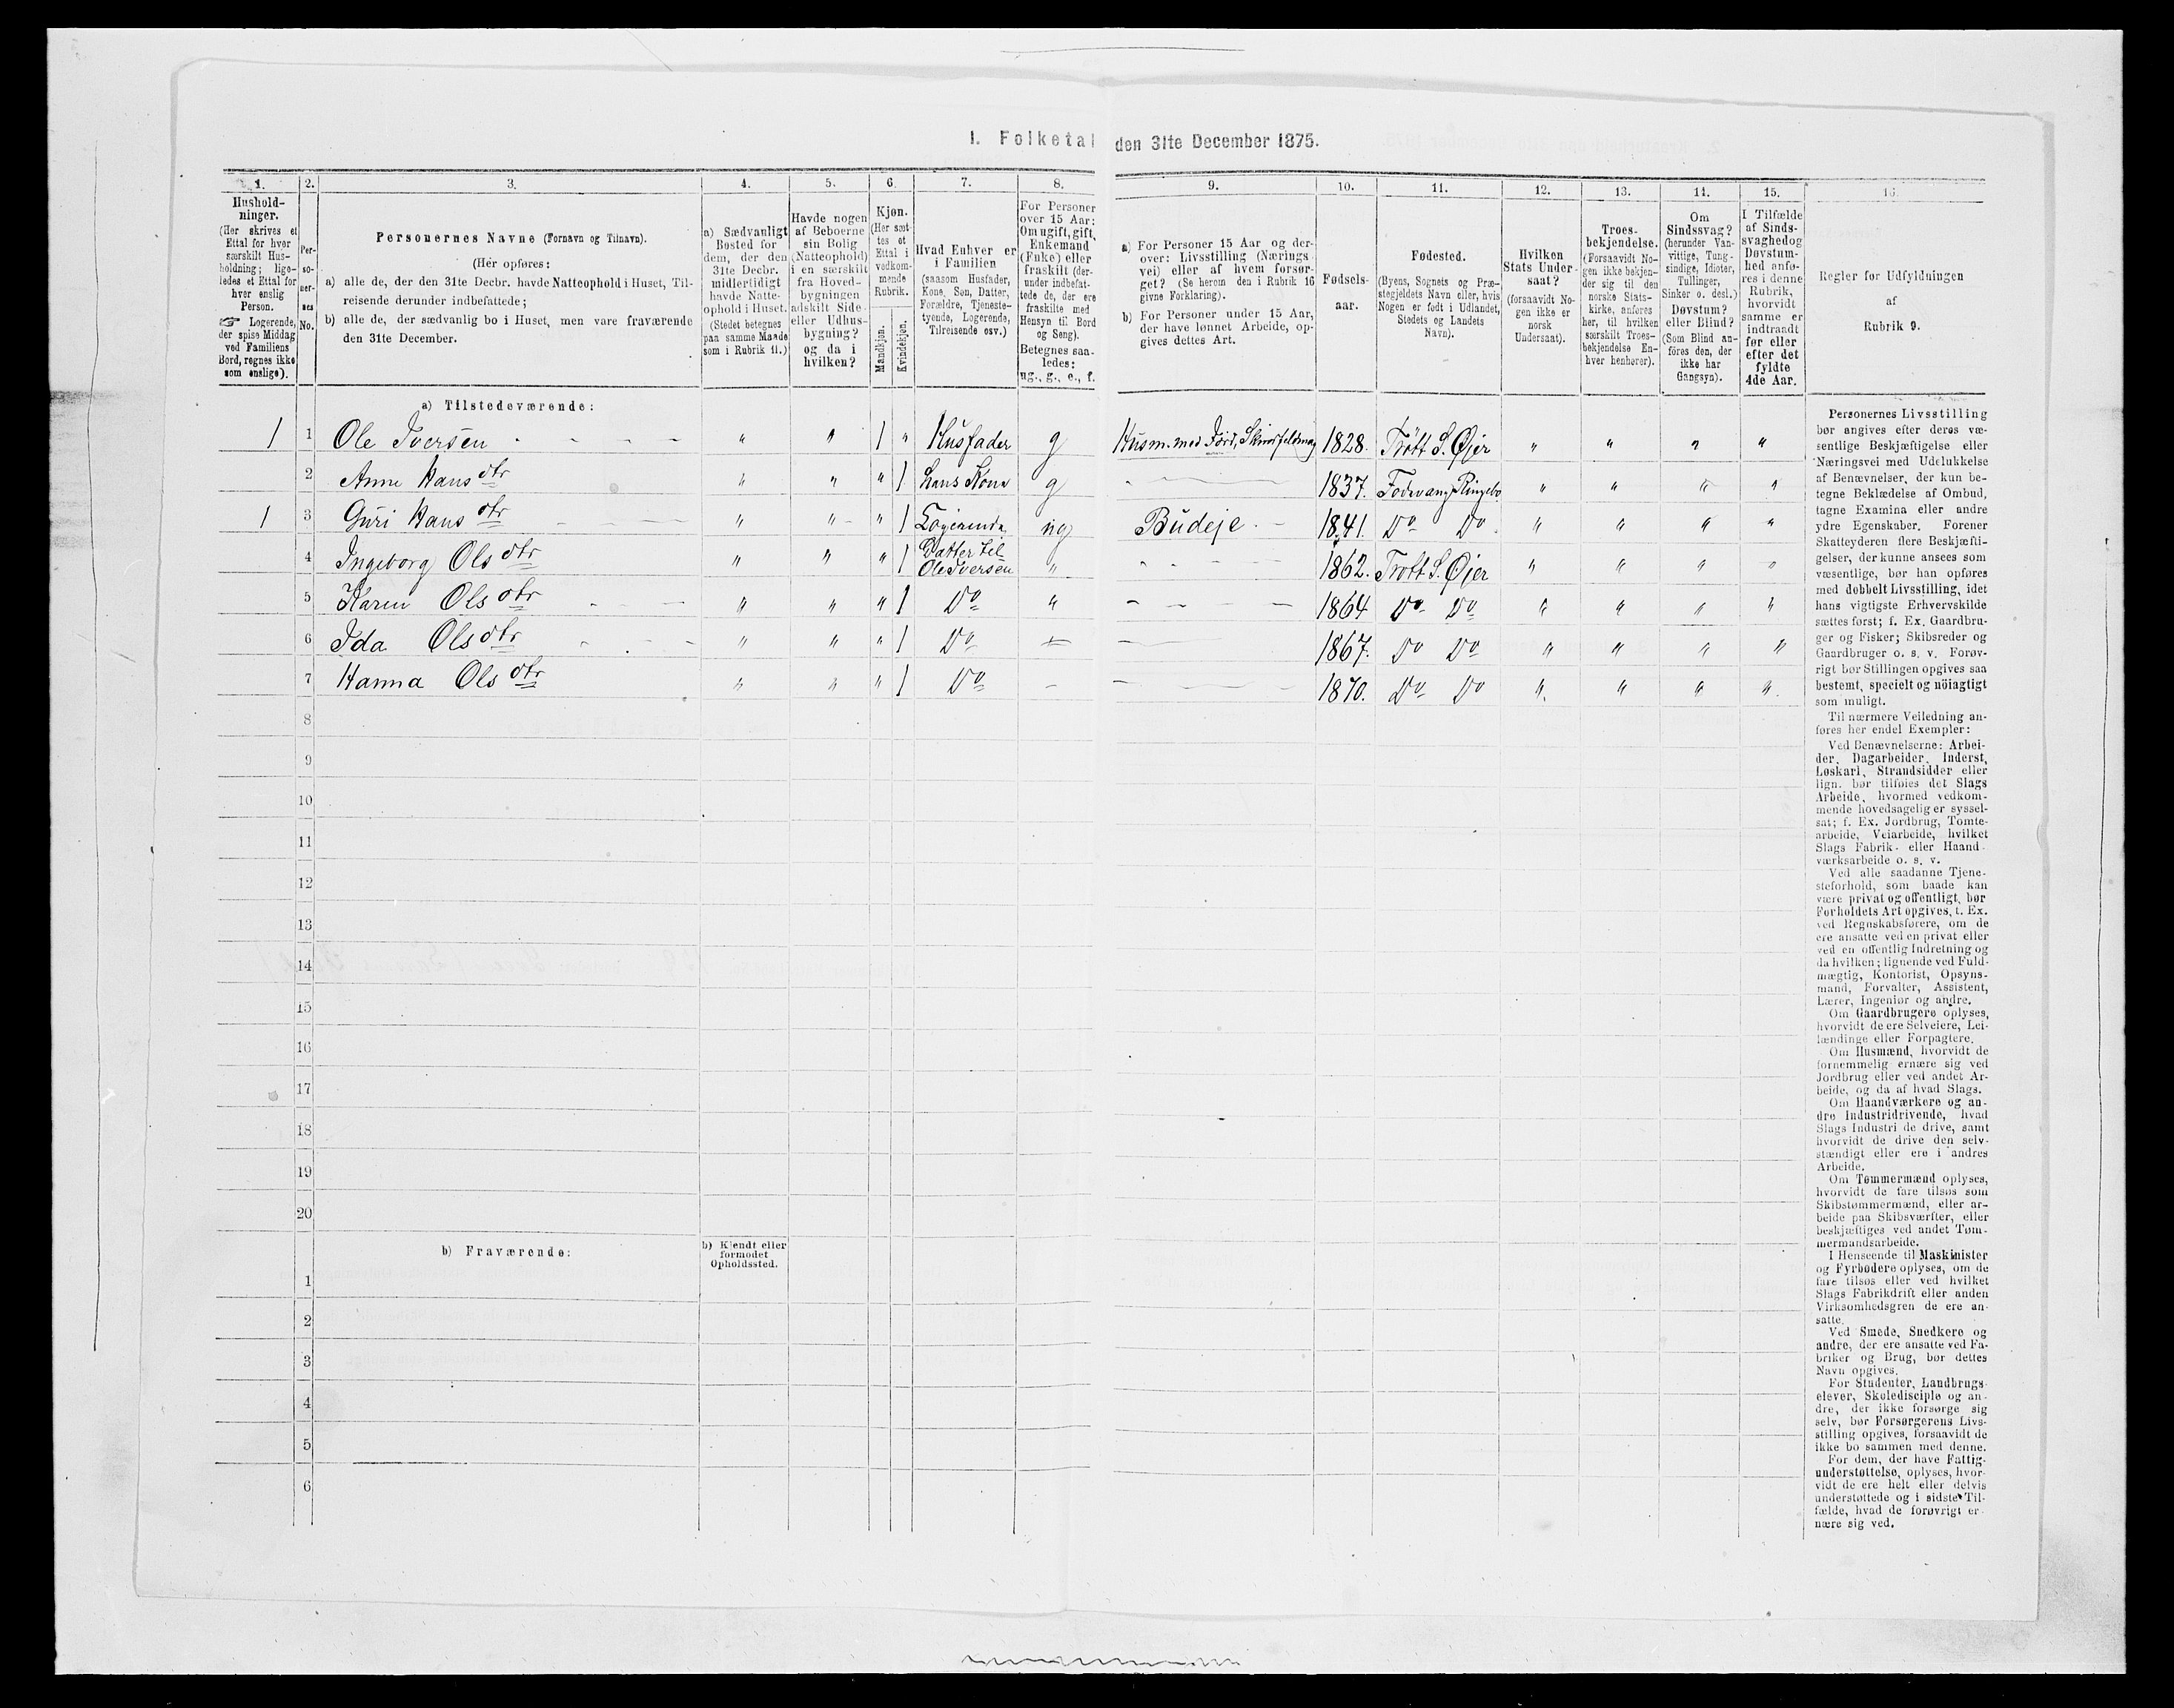 I. Folketal den 31te December 1875.
1.
Hushold-
ninger.
(Her skrives et
Ettal for hver
særskilt Hus-
holdning; lige-
ledes et Ettal for
hver enslig
Person.
☞ Logerende,
der spise Middag
ved Familiens
Bord, regnes ikke
som enslige).
2.
Per-
so-
ner-
nes
No.
3.
Personernes Navne (Fornavn og Tilnavn).
(Her opføres:
a) alle de, der den 31te Decbr. havde Natteophold i Huset, Til-
reisende derunder indbefattede;
b) alle de, der sædvanlig bo i Huset, men vare fraværende
den 31te December.
4.
a) Sædvanligt
Bosted for
dem, der den
31te Decbr.
midlertidigt
havde Natte-
ophold i Huset.
(Stedet betegnes
paa samme Maade
som i Rubrik 11.)
5.
Havde nogen
af Beboerne
sin Bolig
(Natteophold)
i en særskilt
fra Hoved-
bygningen
adskilt Side-
eller Udhus-
bygning?
og da i
hvilken?
6.
Kjøn.
(Her sæt-
tes et
Ettal i
vedkom-
mende
Rubrik.
Mandkjøn.
Kvindekjøn.
7.
Hvad Enhver er
i Familien
(saasom Husfader,
Kone, Søn, Datter,
Forældre, Tjeneste-
tyende, Logerende,
Tilreisende osv.)
8.
For Personer
over 15 Aar:
Om ugift, gift,
Enkemand
(Enke) eller
fraskilt (der-
under indbefat-
tede de, der ere
fraskilte med
Hensyn til Bord
og Seng).
Betegnes saa-
ledes:
ug., g., e., f.
9.
a) For Personer 15 Aar og der-
over: Livsstilling (Nærings-
vei) eller af hvem forsør-
get? (Se herom den i Rubrik 16
givne Forklaring).
b) For Personer under 15 Aar,
der have lønnet Arbeide, op-
gives dettes Art.
10.
Fødsels-
aar.
11.
Fødested.
(Byens, Sognets og Præ-
stegjeldets Navn eller, hvis
Nogen er født i Udlandet,
Stedets og Landets
Navn).
12.
Hvilken
Stats Under-
saat?
(forsaavidt No-
gen ikke er
norsk
Undersaat).
13.
Troes-
bekjendelse.
(Forsaavidt No-
gen ikke bekjen-
der sig til den
norske Stats-
kirke, anføres
her, til hvilken
særskilt Troes-
bekjendelse En-
hver henhører).
14.
Om
Sindssvag?
(herunder Van-
vittige, Tung-
sindige, Idioter,
Tullinger,
Sinker o. desl.)
Døvstum?
eller Blind?
(Som Blind an-
føres den, der
ikke har
Gangsyn).
15.
I Tilfælde
af Sinds-
svaghed og
Døvstum-
hed anfø-
res i denne
Rubrik,
hvorvidt
samme er
indtraadt
før eller
efter det
fyldte
4de Aar.
16.
Regler for Udfyldningen
af
Rubrik 9.
a) Tilstedeværende:
1 1 Ole Iversen - - - - " " 1 " Husfader g Husm. med Jord, Skindfeldmag 1828. Trøtt S. Øjer " " " "
2 Anne Hansdtr " " " 1 hans Kone g " - - - 1837. Fodvang Ringebo " " " "
1 3 Guri Hansdtr - - - " " - " 1 Logerende ug Budeje - 1841. Do Do. " " " "
4 Ingeborg Olsdtr " " " 1 Datter til
Ole Iversen " " - - - 1862. Trøtt S. Øjer " " " "
5 Karen Olsdtr - - - " " " 1 Do " - - - 1864 Do Do " " " "
6 Ida Olsdtr - - - " " " 1 Do - 1867. Do Do " " " "
7 Hanna Olsdtr " " " 1 Do - - - - 1870. Do Do " " " "
8
9
10
11
12
13
14
15
16
17
18
19
20
b) Fraværende:
b) Kjendt eller
formodet
Opholdssted.
1
2
3
4
5
6
Personernes Livsstilling
bør angives efter deres væ-
sentlige Beskjæftigelse eller
Næringsvei med Udelukkelse
af Benævnelser, der kun be-
tegne Beklædelse af Ombud,
tagne Examina eller andre
ydre Egenskaber. Forener
Skatteyderen flere Beskjæfti-
gelser, der kunne ansees som
væsentlige, bør han opføres
med dobbelt Livsstilling, idet
hans vigtigste Erhvervskilde
sættes først; f. Ex. Gaardbru-
ger og Fisker; Skibsreder og
Gaardbruger o. s. v. Forøv-
rigt bør Stillingen opgives saa
bestemt, specielt og nøiagtigt
som muligt.
Til nærmere Veiledning an-
føres her endel Exempler:
Ved Benævnelserne: Arbei-
der, Dagarbeider, Inderst,
Løskarl, Strandsidder eller
lign. bør tilføies det Slags
Arbeide, hvormed vedkom-
mende hovedsagelig er syssel-
sat; f. Ex. Jordbrug, Tomte-
arbeide, Veiarbeide, hvilket
Slags Fabrik- eller Haand-
værksarbeide o. s. v.
Ved alle saadanne Tjene-
steforhold, som baade kan
være privat og offentligt, bør
Forholdets Art opgives, t. Ex.
ved Regnskabsførere, om de
ere ansatte ved en privat eller
ved en offentlig Indretning og
da hvilken; lignende ved Fuld-
mægtig, Kontorist, Opsyns-
mand, Forvalter, Assistent,
Lærer, Ingeniør og andre.
Om Gaardbrugere oplyses,
hvorvidt de ere Selveiere, Lei-
lændinge eller Forpagtere.
Om Husmænd, hvorvidt de
fornemmelig ernære sig ved
Jordbrug eller ved andet Ar-
beide, og da af hvad Slags.
Om Haandværkere og an-
dre Industridrivende, hvad
Slags Industri de drive, samt
hvorvidt de drive den selv-
stændigt eller ere i andres
Arbeide.
Om Tømmermænd oplyses,
hvorvidt de fare tilsøs som
Skibstømmermænd, eller ar-
beide paa Skibsværfter, eller
beskjæftiges ved andet Tøm-
mermandsarbeide.
I Henseende til Maskinister
og Fyrbødere oplyses, om de
fare tilsøs eller ved hvilket
Slags Fabrikdrift eller anden
Virksomhedsgren de ere an-
satte.
Ved Smede, Snedkere og
andre, der ere ansatte ved Fa-
briker og Brug, bør dettes
Navn opgives.
For Studenter, Landbrugs-
elever, Skoledisciple og an-
dre, der ikke forsørge sig
selv, bør Forsørgerens Livs-
stilling opgives, forsaavidt de
ikke bo sammen med denne.
For dem, der have Fattig-
understøttelse, oplyses, hvor-
vidt de ere helt eller delvis
understøttede og i sidste Til-
fælde, hvad de forøvrigt er-
nære sig ved.